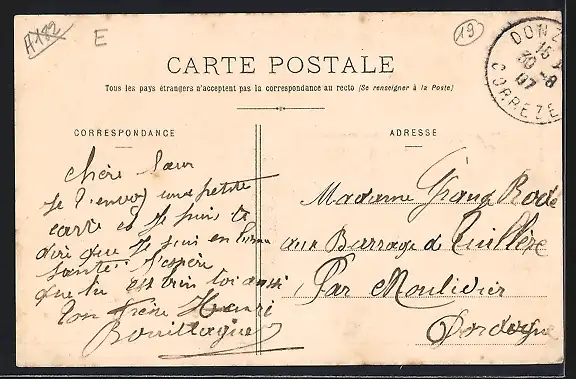 A182
E
19
DONZ
15
30 -8
07
CORREZE
CARTE POSTALE
Tous les pays étrangers n'acceptent pas la correspondance au recto (Se renseigner à la Poste)
CORRESPONDANCE
ADRESSE
chère Sœur
Je t'envoy une petite
carte et Je puis te
dire que Je suis en bonne
santé J'espère
que tu est bien toi aussi
ton frère Henri
Bouillaguet
Madame Grang Rode
aux Barrage d Tuillère
Par Moulidier
Dordogne